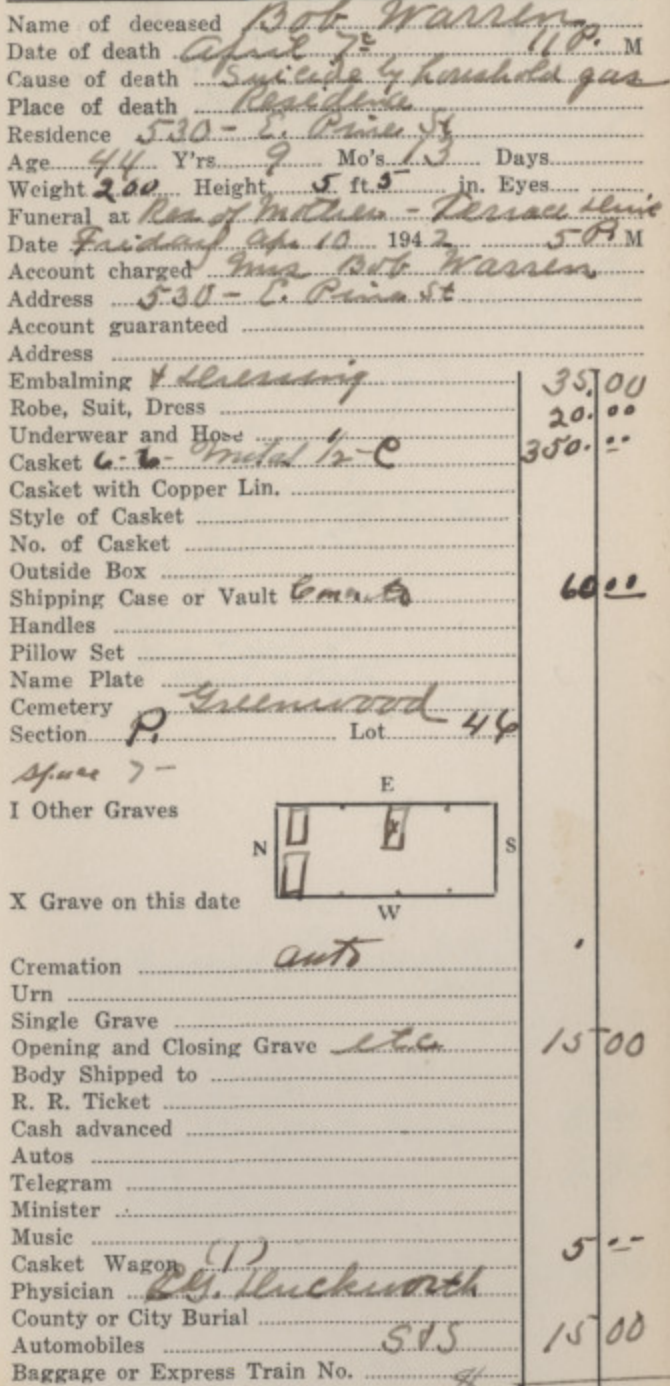 Name of deceased Bob Warren
Date of death April 7th 11 P. M
Cause of death Suicide by household gas
Place of death Residence
Residence 530 - E. Pine St
Age 44 Y'rs 9 Mo's 13 Days
Weight 200 Height 5 ft 5 in. Eyes
Funeral at Res of Mother - Terrace
Date Friday Apr 10 1942 5 P M
Account charged Mrs Bob Warren
Address 530 - E. Pine St
Account guaranteed
Address
Embalming & Dressing 35.00
Robe, Suit, Dress 20.00
Underwear and Hose
Casket 6-6- Metal 1/2 - C 350.00
Casket with Copper Lin.
Style of Casket
No. of Casket
Outside Box
Shipping Case or Vault 60 00
Handles
Pillow Set
Name Plate
Cemetery Greenwood
Section P. Lot 46
Space 7 -
E
I Other Graves
N S
X Grave on this date
W
Cremation auto
Urn
Single Grave
Opening and Closing Grave etc 15 00
Body Shipped to
R. R. Ticket
Cash advanced
Autos
Telegram
Minister
Music
Casket Wagon 5 --
Physician Duckworth
County or City Burial
Automobiles S & S 15 00
Baggage or Express Train No.